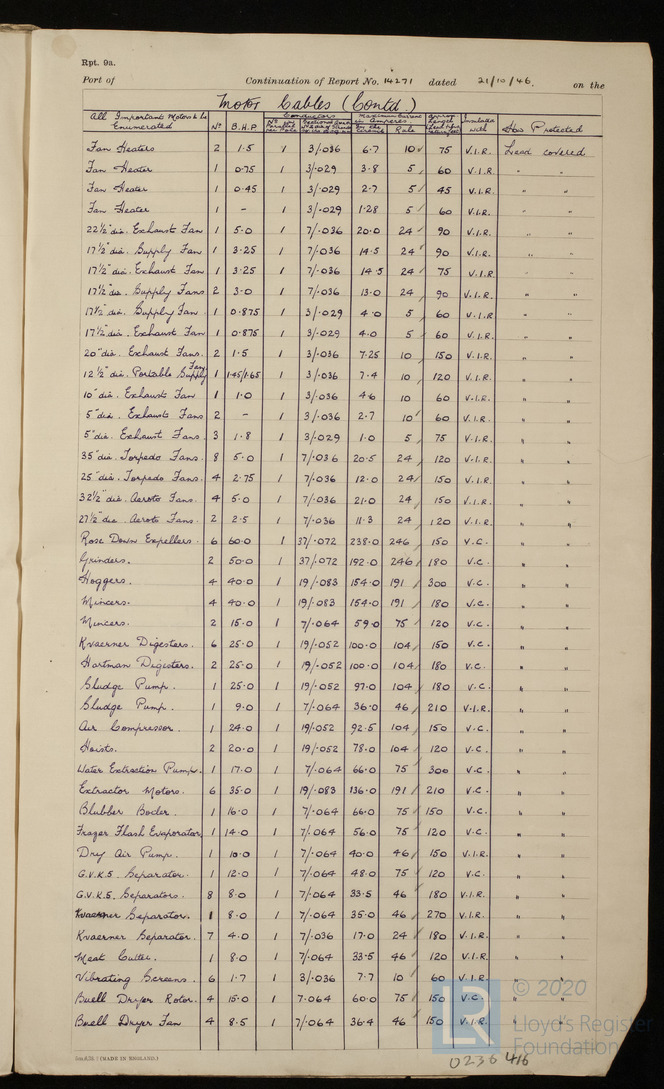 Rpt. 9a.
Port of Continuation of Report No. 14271 dated 21/10/46. on the
Motor Cables (Contd.)
All Important Motors to be Enumerated Nº B.H.P. Conductors Nº in Parallel per Pole Maximum Current in Amperes. Rule Insulated with How Protected
Fan Heaters 2 1.5 1 3/.036 6.7 10 ✓ 75 V.I.R. Lead covered
Fan Heater 1 0.75 1 3/.029 3.8 5 ✓ 60 V.I.R. " "
Fan Heater 1 0.45 1 3/.029 2.7 5 ✓ 45 V.I.R. " "
Fan Heater 1 - 1 3/.029 1.28 5 ✓ 60 V.I.R. " "
22½" dia. Exhaust Fan 1 5.0 1 7/.036 20.0 24 ✓ 90 V.I.R. " "
17½" dia. Supply Fan 1 3.25 1 7/.036 14.5 24 ✓ 90 V.I.R. " "
17½" dia. Exhaust Fan 1 3.25 1 7/.036 14.5 24 ✓ 75 V.I.R. " "
17½" dia. Supply Fans 2 3.0 1 7/.036 13.0 24 ✓ 90 V.I.R. " "
17½" dia. Supply Fan 1 0.875 1 3/.029 4.0 5 ✓ 60 V.I.R. " "
17½" dia. Exhaust Fan 1 0.875 1 3/.029 4.0 5 ✓ 60 V.I.R. " "
20" dia. Exhaust Fans. 2 1.5 1 3/.036 7.25 10 ✓ 150 V.I.R. " "
12½" dia. Portable Supply Fan 1 1.45/1.65 1 3/.036 7.4 10 ✓ 120 V.I.R. " "
10" dia. Exhaust Fan 1 1.0 1 3/.036 4.6 10 60 V.I.R. " "
5" dia. Exhaust Fans 2 - 1 3/.036 2.7 10 ✓ 60 V.I.R. " "
5" dia. Exhaust Fans. 3 1.8 1 3/.029 1.0 5 ✓ 75 V.I.R. " "
35" dia. Torpedo Fans. 8 5.0 1 7/.036 20.5 24 ✓ 120 V.I.R. " "
25" dia. Torpedo Fans. 4 2.75 1 7/.036 12.0 24 ✓ 150 V.I.R. " "
32½" dia. Aeroto Fans. 4 5.0 1 7/.036 21.0 24 ✓ 150 V.I.R. " "
27½" dia. Aeroto Fans. 2 2.5 1 7/.036 11.3 24 ✓ 120 V.I.R. " "
Rose Down Expellers. 6 60.0 1 37/.072 238.0 246 ✓ 150 V.C. " "
Grinders. 2 50.0 1 37/.072 192.0 246 ✓ 180 V.C. " "
Hoggers. 4 40.0 1 19/.083 154.0 191 ✓ 300 V.C. " "
Mincers. 4 40.0 1 19/.083 154.0 191 ✓ 180 V.C. " "
Mincers. 2 15.0 1 7/.064 59.0 75 ✓ 120 V.C. " "
Kvaerner Digesters. 6 25.0 1 19/.052 100.0 104 ✓ 150 V.C. " "
Hartman Digesters. 2 25.0 1 19/.052 100.0 104 ✓ 180 V.C. " "
Sludge Pump. 1 25.0 1 19/.052 97.0 104 ✓ 180 V.C. " "
Sludge Pump. 1 9.0 1 7/.064 36.0 46 ✓ 210 V.I.R. " "
Air Compressor. 1 24.0 1 19/.052 92.5 104 ✓ 150 V.C. " "
Hoists. 2 20.0 1 19/.052 78.0 104 ✓ 120 V.C. " "
Water Extraction Pump. 1 17.0 1 7/.064 66.0 75 ✓ 300 V.C. " "
Extractor Motors. 6 35.0 1 19/.083 136.0 191 ✓ 210 V.C. " "
Blubber Boiler. 1 16.0 1 7/.064 66.0 75 ✓ 150 V.C. " "
Frazer Flash Evaporator. 1 14.0 1 7/.064 56.0 75 ✓ 120 V.C. " "
Dry Air Pump. 1 10.0 1 7/.064 40.0 46 ✓ 150 V.I.R. " "
G.V.K.5. Separator. 1 12.0 1 7/.064 48.0 75 ✓ 120 V.C. " "
G.V.K.5. Separators. 8 8.0 1 7/.064 33.5 46 180 V.I.R. " "
Kvaerner Separator. 1 8.0 1 7/.064 35.0 46 ✓ 270 V.I.R. " "
Kvaerner Separator. 7 4.0 1 7/.036 17.0 24 ✓ 180 V.I.R. " "
Meat Cutter. 1 8.0 1 7/.064 33.5 46 ✓ 120 V.I.R. " "
Vibrating Screens. 6 1.7 1 3/.036 7.7 10 ✓ 60 V.I.R. " "
Buell Dryer Rotor. 4 15.0 1 7.064 60.0 75 ✓ 150 V.C. " "
Buell Dryer Fan 4 8.5 1 7/.064 36.4 46 ✓ 150 V.I.R. " "
(MADE IN ENGLAND.)
0236 416
LR © 2020
Lloyd's Register
Foundation